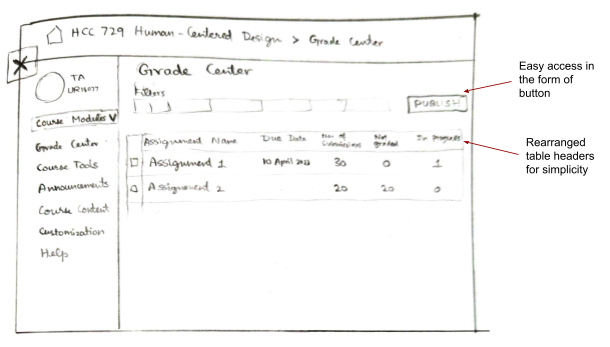 HCC 729 Human-Centered Design > Grade Center
TA
Grade Center
Filters
PUBLISH
Course Modules
Grade Center
Course Tools
Announcements
Course Content
Customization
Help
Assignment Name Due Date No. of submissions Not graded In Progress
Assignment 1 10 April 2023 30 0 1
Assignment 2 20 20 0
Easy access in
the form of
button
Rearranged
table headers
for simplicity